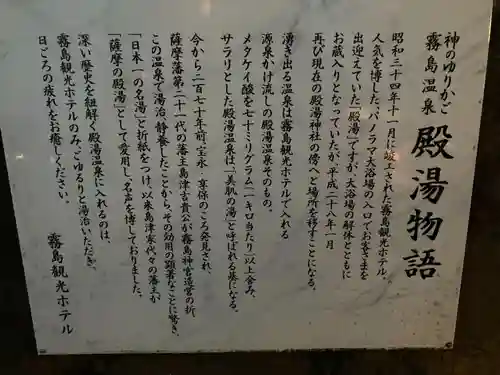 神のゆりかご
霧島温泉
殿湯物語
昭和三十四年十一月に竣工された霧島観光ホテル。
人気を博した、パノラマ大浴場の入口でお客さまを
出迎えていた「殿湯」ですが、大浴場の解体とともに
お蔵入りとなっていたが、平成二十八年一月
再び現在の殿湯神社の傍へと場所を移すことになる。
湧き出る温泉は霧島観光ホテルで入れる
源泉かけ流しの殿湯温泉そのもの。
メタケイ酸を七十ミリグラム(一キロ当たり)以上含み、
サラリとした殿湯温泉は、「美肌の湯」と呼ばれる基になる。
今から二百七十年前、宝永・享保のころ発見され、
薩摩藩第二十一代の藩主島津吉貴公が霧島神宮造営の折、
この温泉で湯治、静養したことから、その効用の顕著なことに驚き、
「日本一の名湯」と折紙をつけ、以来島津家代々の藩主が
「薩摩の殿湯」として愛用し、名声を博しておりました。
深い歴史を紐解く殿湯温泉に入れるのは、
霧島観光ホテルのみ、ごゆるりと湯治いただき、
日ごろの疲れをお癒しください。
霧島観光ホテル